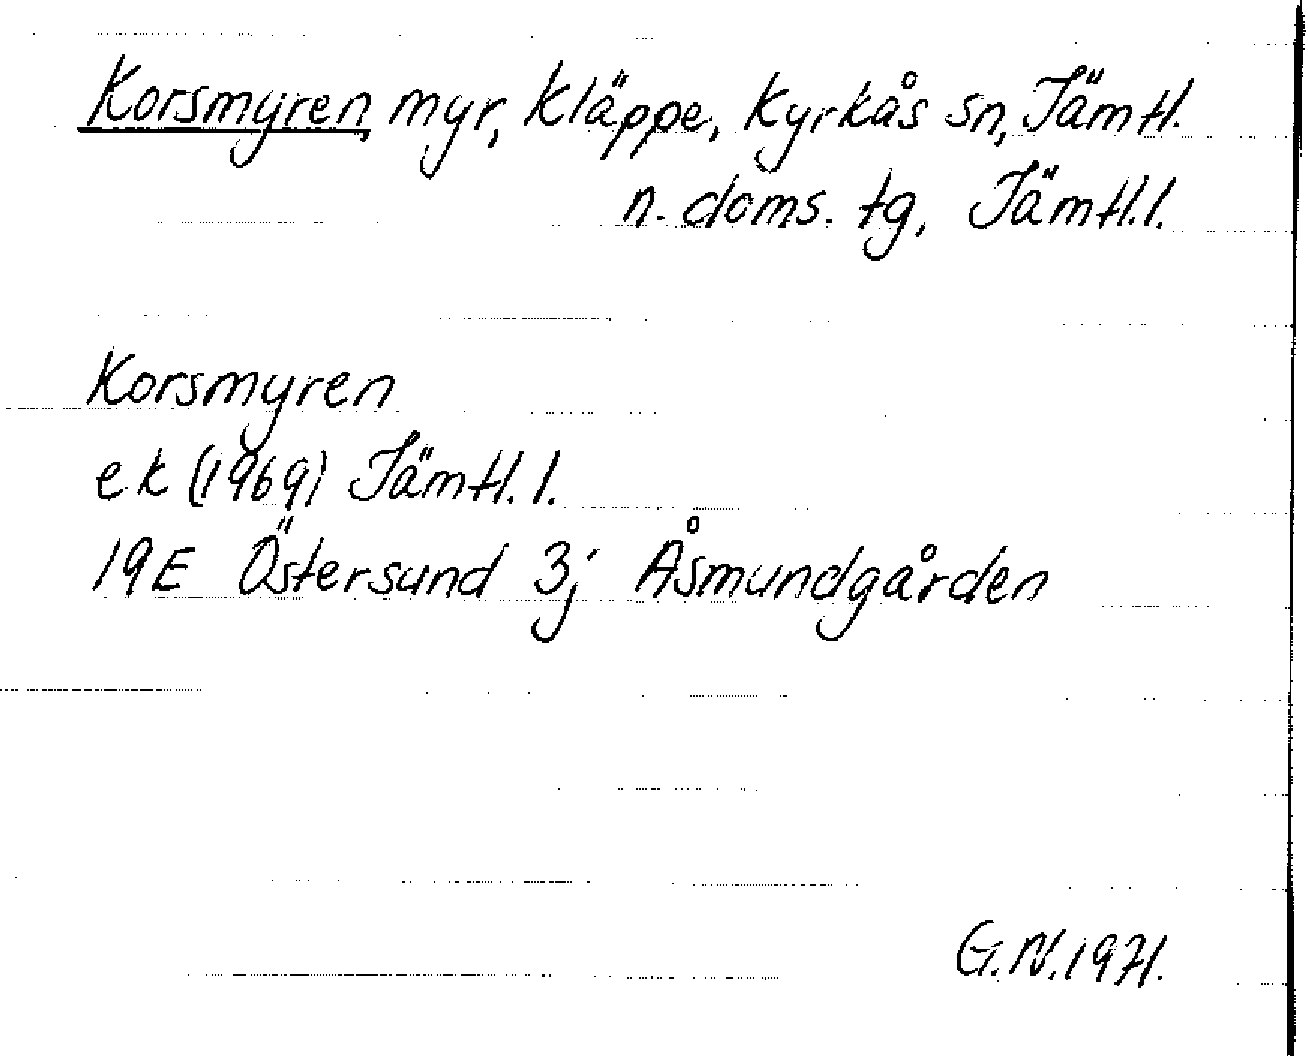 Korsmyren, myr, Kläppe, Kyrkås sn, Jämtl.
n. doms. tg, Jämtl.l.
Korsmyren
ek (1969) Jämtl. l.
19E Östersund 3j Åsmundgården
G.N.1971.